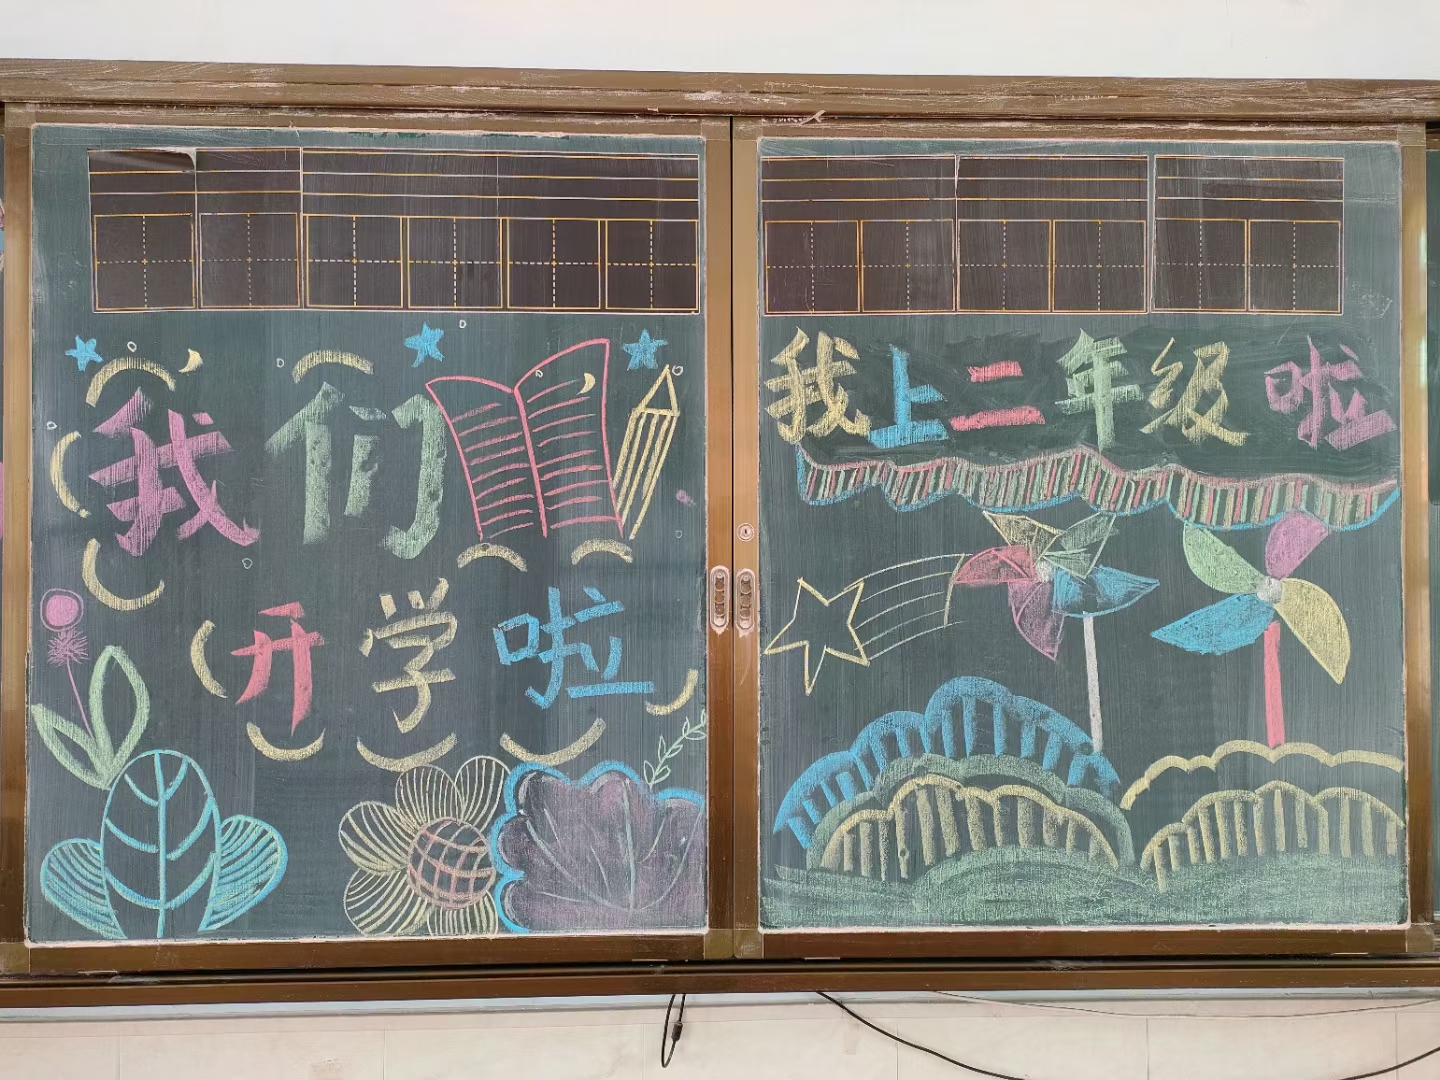 我们
开学啦
我上二年级啦